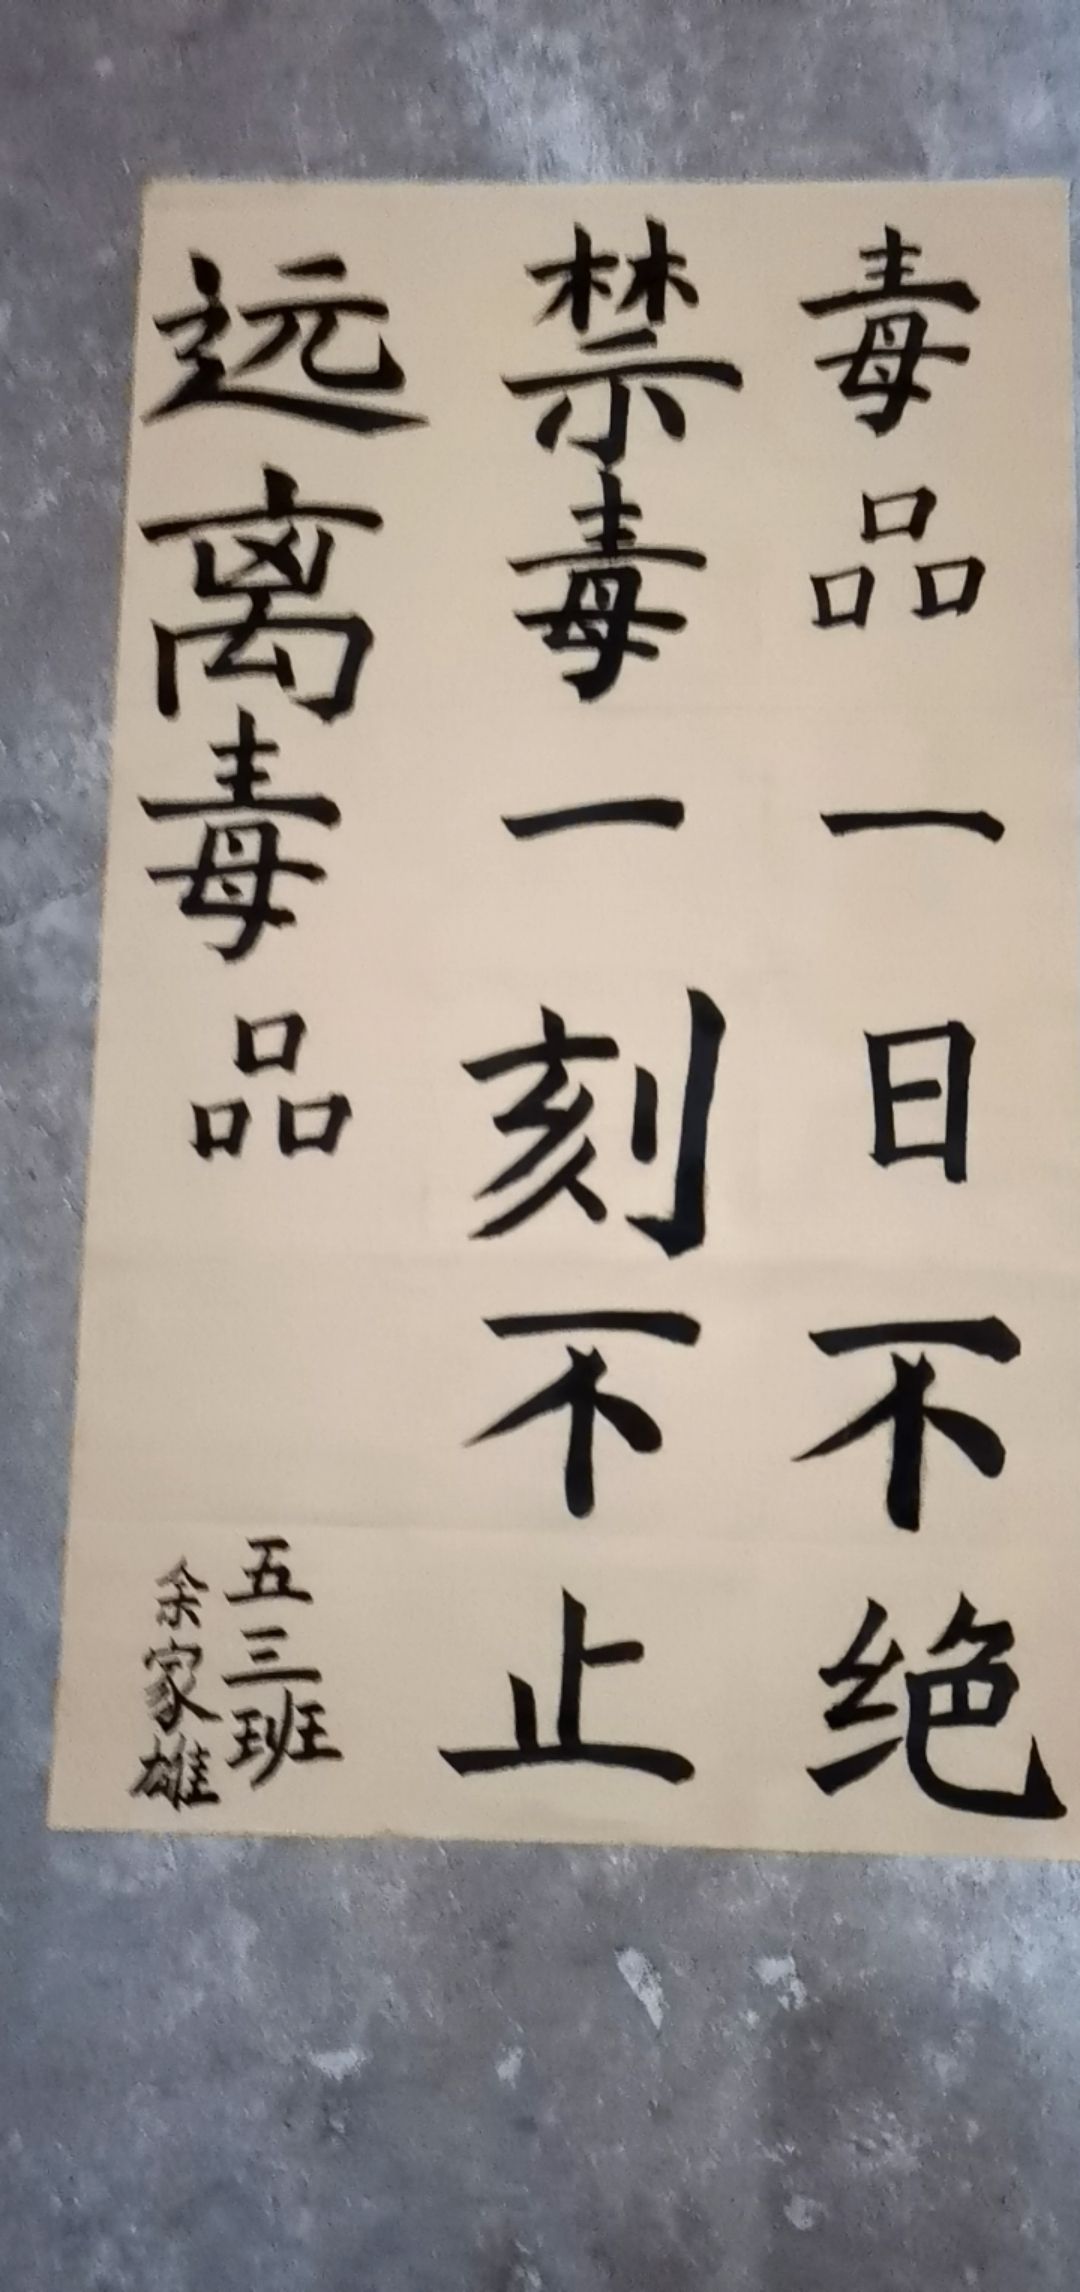 毒品一日不绝
禁毒一刻不止
远离毒品
五三班
余家雄